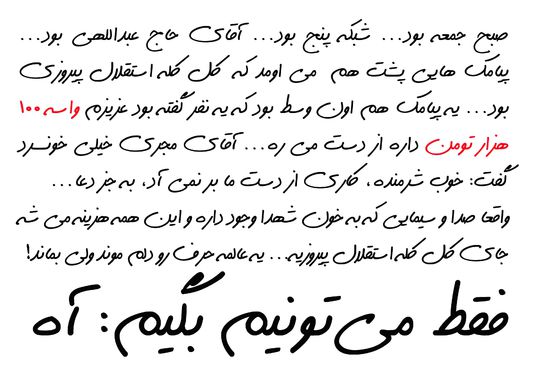 صبح جمعه بود... شبکه پنج بود... آقای حاج عبداللهی بود...
پیامک هایی پشت هم می اومد که کل کله استقلال پیروزی
بود... یه پیامک هم اون وسط بود که یه نفر گفته بود عزیزم واسه ۱۰۰
هزار تومن داره از دست می ره... آقای مجری خیلی خونسرد
گفت: خوب شرمنده، کاری از دست ما بر نمی آد، به جز دعا...
واقعا صدا و سیمایی که به خون شهدا وجود داره و این همه هزینه می شه
جای کل کل استقلال پیروزیه... یه عالمه حرف رو دلم موند ولی بماند!
فقط می تونیم بگیم: آه